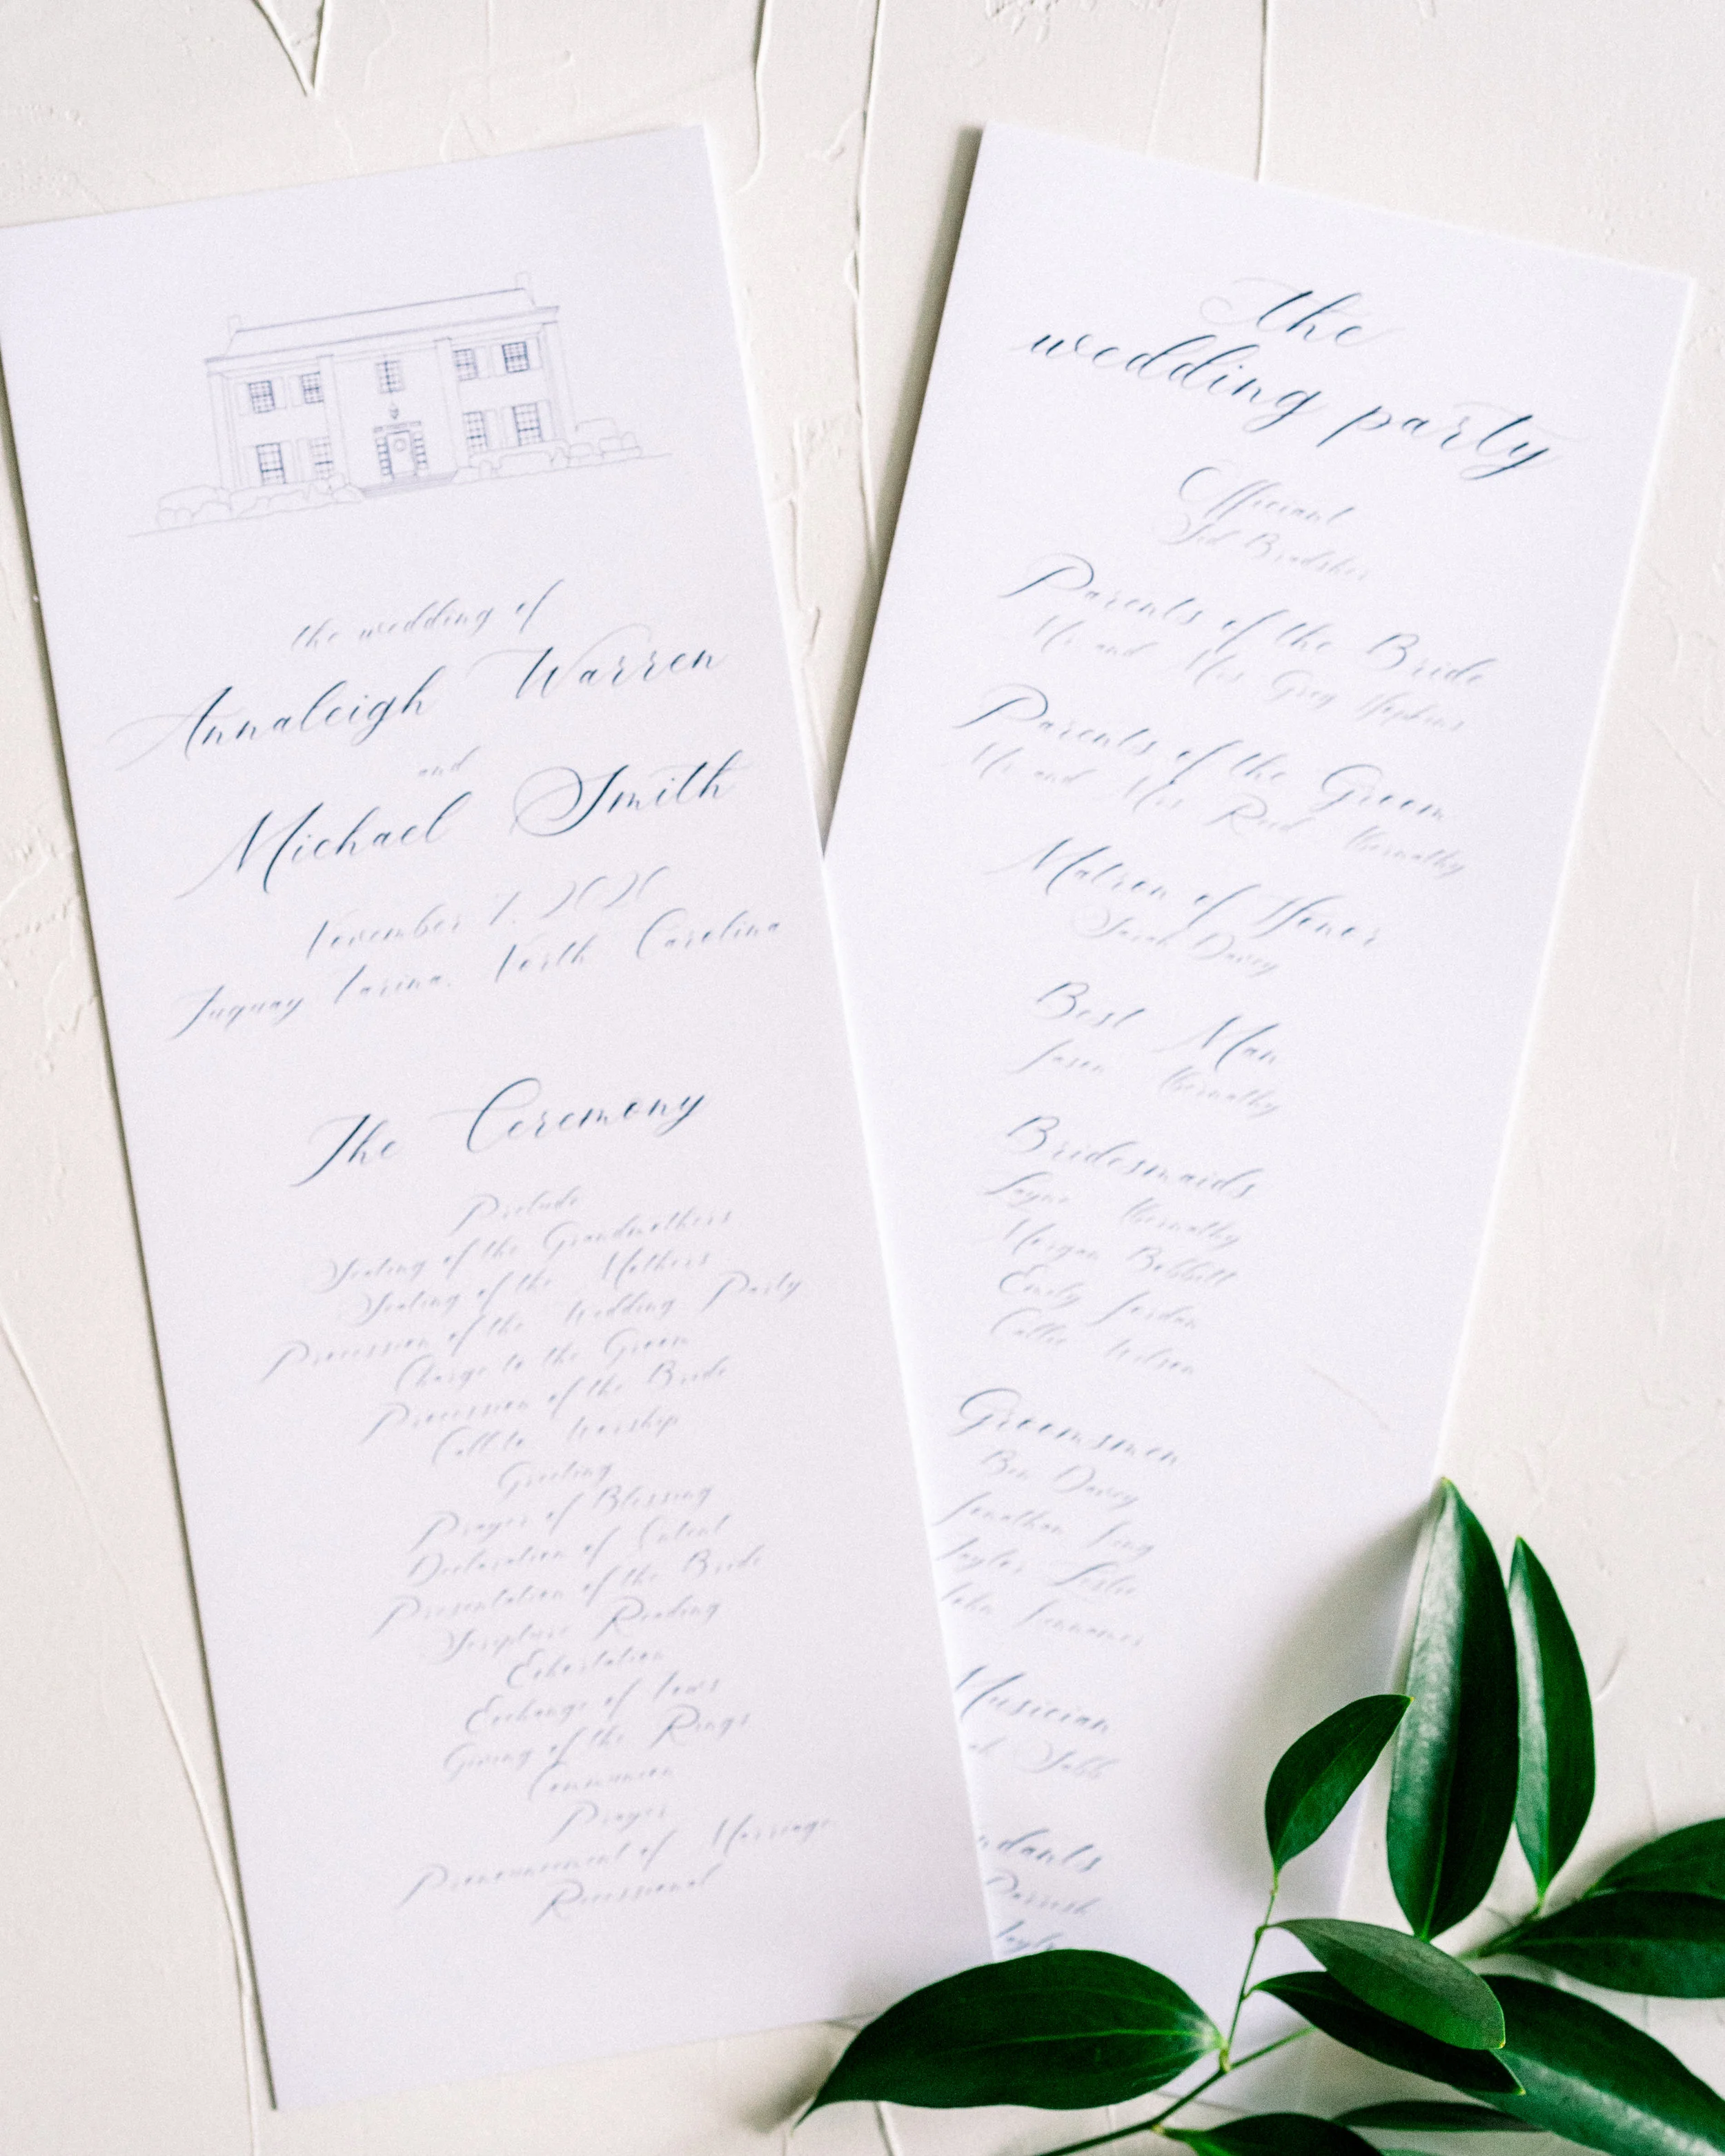 the wedding of
Annaleigh Warren
and
Michael Smith
November 7, 2020
Fuquay Varina, North Carolina
The Ceremony
Prelude
Seating of the Grandmothers
Seating of the Mothers
Procession of the Wedding Party
Charge to the Groom
Procession of the Bride
Call to Worship
Greeting
Prayer of Blessing
Declaration of Intent
Presentation of the Bride
Scripture Reading
Exhortation
Exchange of Vows
Giving of the Rings
Communion
Prayer
Pronouncement of Marriage
Recessional
the
wedding party
Officiant
Bradsher
Parents of the Bride
Mr and Mrs Greg Hopkins
Parents of the Groom
Mr and Mrs Reed Abernathy
Matron of Honor
Sarah Davey
Best Man
Jason Abernathy
Bridesmaids
Abernathy
Morgan Bobbitt
Emily Jordan
Callie Wilson
Groomsmen
Ben Davey
Jonathan
Taylor Leslie
John
Musician
ndants
Parrish